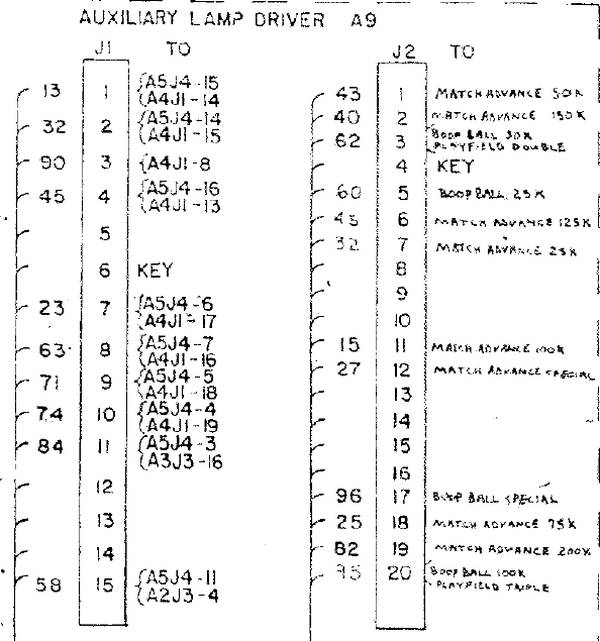 AUXILIARY LAMP DRIVER A9
J1 TO
13 1 A5J4-15
A4J1-14
32 2 A5J4-14
A4J1-15
90 3 A4J1-8
45 4 A5J4-16
A4J1-13
5
6 KEY
23 7 A5J4-6
A4J1-17
63 8 A5J4-7
A4J1-16
71 9 A5J4-5
A4J1-18
74 10 A5J4-4
A4J1-19
84 11 A5J4-3
A3J3-16
12
13
14
58 15 A5J4-11
A2J3-4
J2 TO
43 1 MATCH ADVANCE 50K
40 2 MATCH ADVANCE 150K
62 3 BOOP BALL 50K
PLAYFIELD DOUBLE
4 KEY
60 5 BOOP BALL 25K
45 6 MATCH ADVANCE 125K
32 7 MATCH ADVANCE 25K
8
9
10
15 11 MATCH ADVANCE 100K
27 12 MATCH ADVANCE SPECIAL
13
14
15
16
96 17 BOOP BALL SPECIAL
25 18 MATCH ADVANCE 75K
82 19 MATCH ADVANCE 200K
20 BOOP BALL 100K
PLAYFIELD TRIPLE